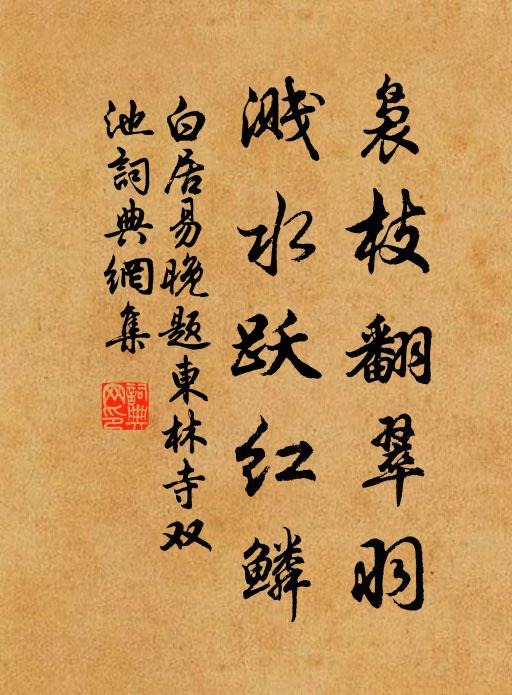 袅枝翻翠羽
溅水跃红鳞
白居易晚题東林寺双
池詞典網集
詞典
网印